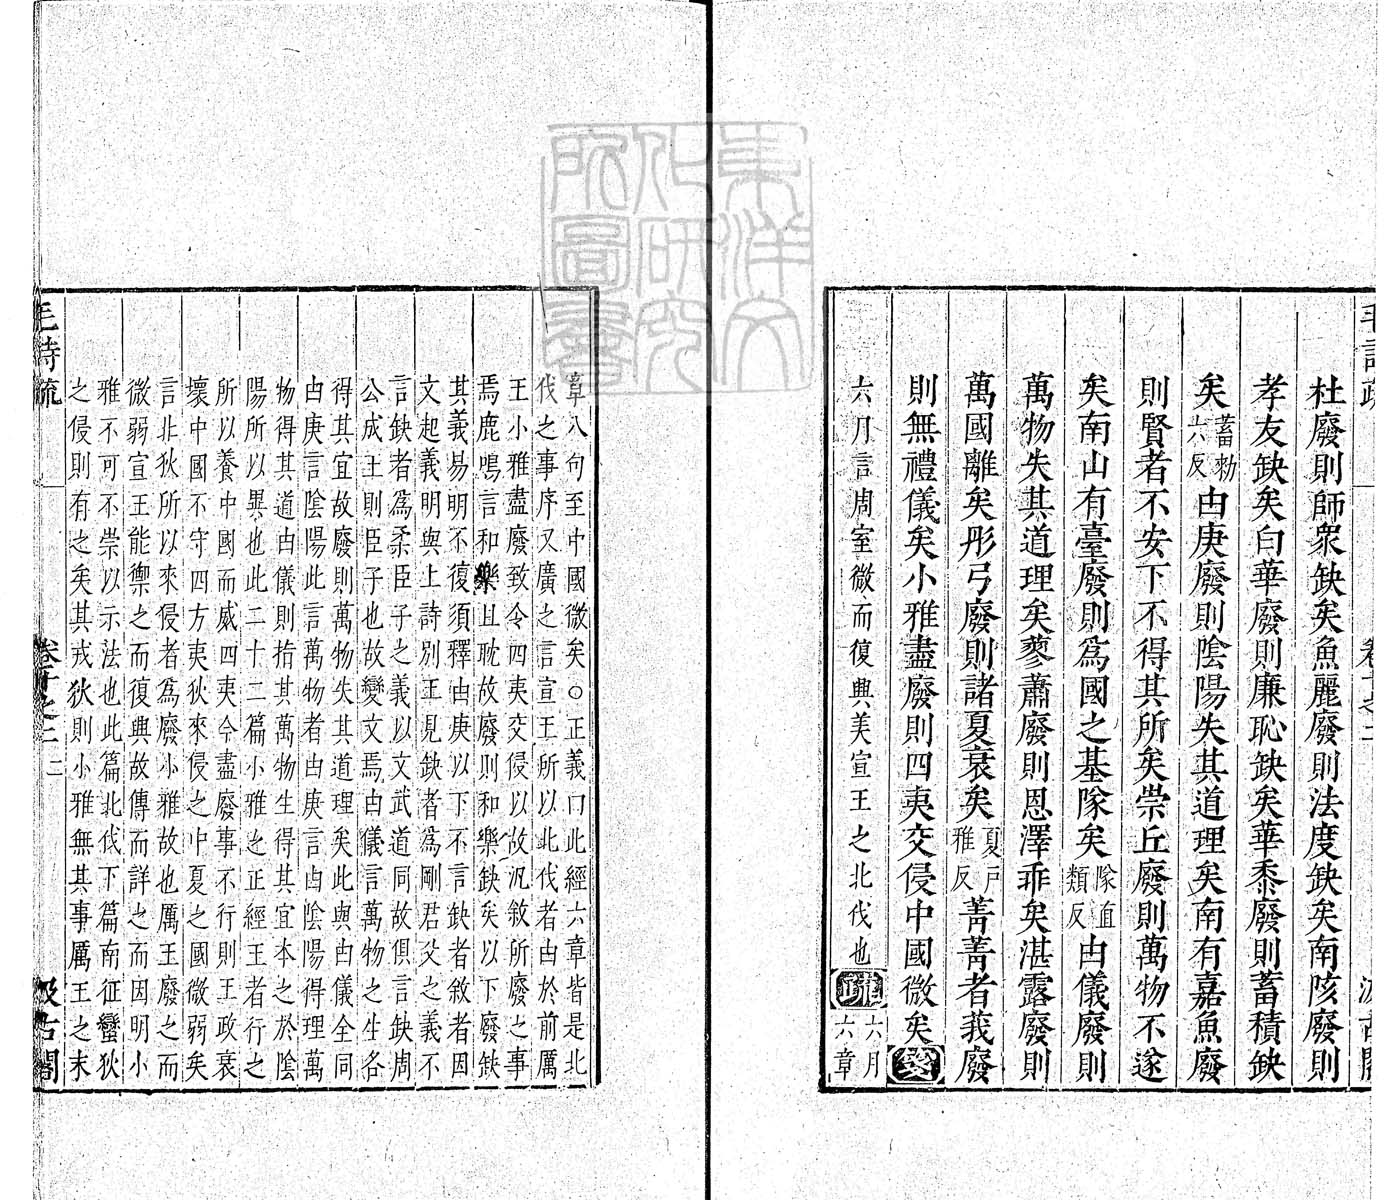 杜廢則師衆缺矣魚麗廢則法度缺矣南陔廢則
孝友缺矣白華廢則廉恥缺矣華黍廢則蓄積缺
矣蓄勑六反由庚廢則陰陽失其道理矣南有嘉魚廢
則賢者不安下不得其所矣崇丘廢則萬物不遂
矣南山有臺廢則為國之基隊矣隊直類反由儀廢則
萬物失其道理矣蓼蕭廢則恩澤乖矣湛露廢則
萬國離矣彤弓廢則諸夏衰矣夏戸雅反菁菁者莪廢
則無禮儀矣小雅盡廢則四夷交侵中國微矣箋
六月言周室微而復興美宣王之北伐也疏六月六章
章八句至中國微矣○正義曰此經六章皆是北
伐之事序又廣之言宣王所以北伐者由於前厲
王小雅盡廢致令四夷交侵以故汎敘所廢之事
焉鹿鳴言和樂且耽故廢則和樂缺矣以下廢缺
其義易明不復須釋由庚以下不言缺者敘者因
文起義明與上詩別正見缺者為剛君父之義不
言缺者為柔臣子之義以文武道同故俱言缺周
公成王則臣子也故變文焉由儀言萬物之生各
得其宜故廢則萬物失其道理矣此與由儀全同
由庚言陰陽此言萬物者由庚言由陰陽得理萬
物得其道由儀則指其萬物生得其宜本之於陰
陽所以異也此二十二篇小雅之正經王者行之
所以養中國而威四夷今盡廢事不行則王政衰
壞中國不守四方夷狄來侵之中夏之國微弱矣
言北狄所以來侵者為廢小雅故也厲王廢之而
微弱宣王能禦之而復興故傳而詳之而因明小
雅不可不崇以示法也此篇北伐下篇南征蠻狄
之侵則有之矣其戎狄則小雅無其事厲王之末
毛詩疏 卷十之二 二 汲古閣